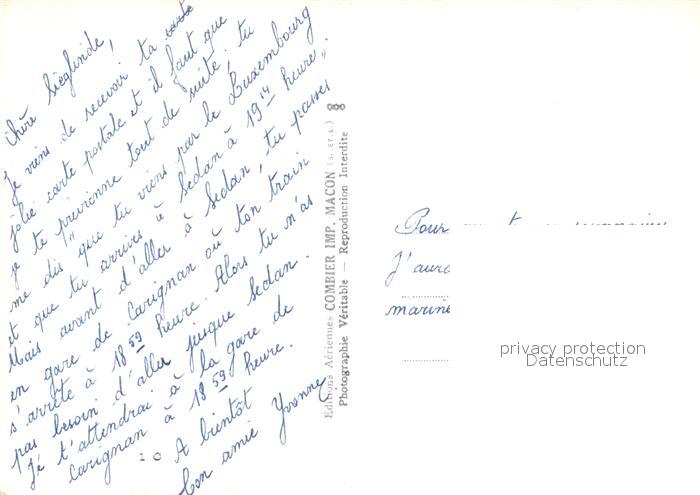 Chère Sieglinde,
Je viens de recevoir ta carte
jolie carte postale et il faut que
je te prévienne tout de suite. tu
me dis que tu viens par le Luxembourg
et que tu arrives à Sedan à 19 14 heure."
Mais avant d'aller à Sedan, tu passes
en gare de Carignan où ton train
s'arrête à 18 59 heure. Alors tu n'as
pas besoin d'aller jusque Sedan.
Je t'attendrai à la gare de
Carignan à 18 59 heure.
A bientôt
Ton amie Yvonne
10
Editions Aériennes COMBIER IMP. MACON (S.-ET-L.)
Photographie Véritable — Reproduction Interdite
Pour
J'aura
marine
privacy protection
Datenschutz